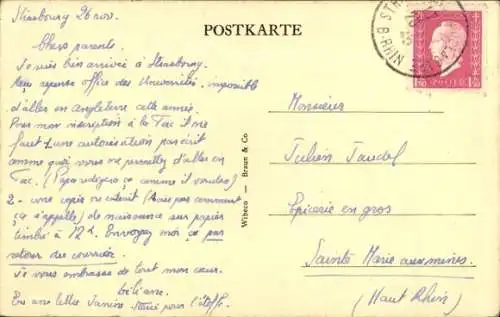 POSTKARTE
Strasbourg 26 nov.
Chers parents.
Je suis bien arrivée à Strasbourg.
reponse office des Universités, impossible
d'aller en Angleterre cette année.
Pour mon inscription à la Fac il me
faut 1 une autorisation par écrit
comme quoi vous me permettez d'aller en
Fac. (Papa rédigera ça comme il voudra)
2 - une copie ou extrait (sais pas comment
ça s'appelle) de naissance sur papier
timbré à 12f. Envoyez moi ça par
retour du courrier.
Je vous embrasse de tout mon cœur.
Liliane.
Eu une lettre Janine pour l'étoffe.
Wibeco — Braun & Co
STR
B-RHIN
Monsieur
Julien Jaudel
Epicerie en gros
Sainte Marie aux mines.
(Haut Rhin)